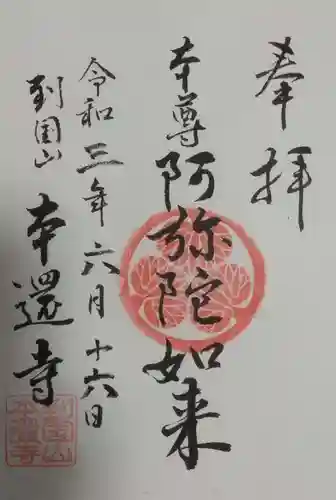 奉拝
本尊阿弥陀如来
令和三年六月十六日
到国山
本還寺